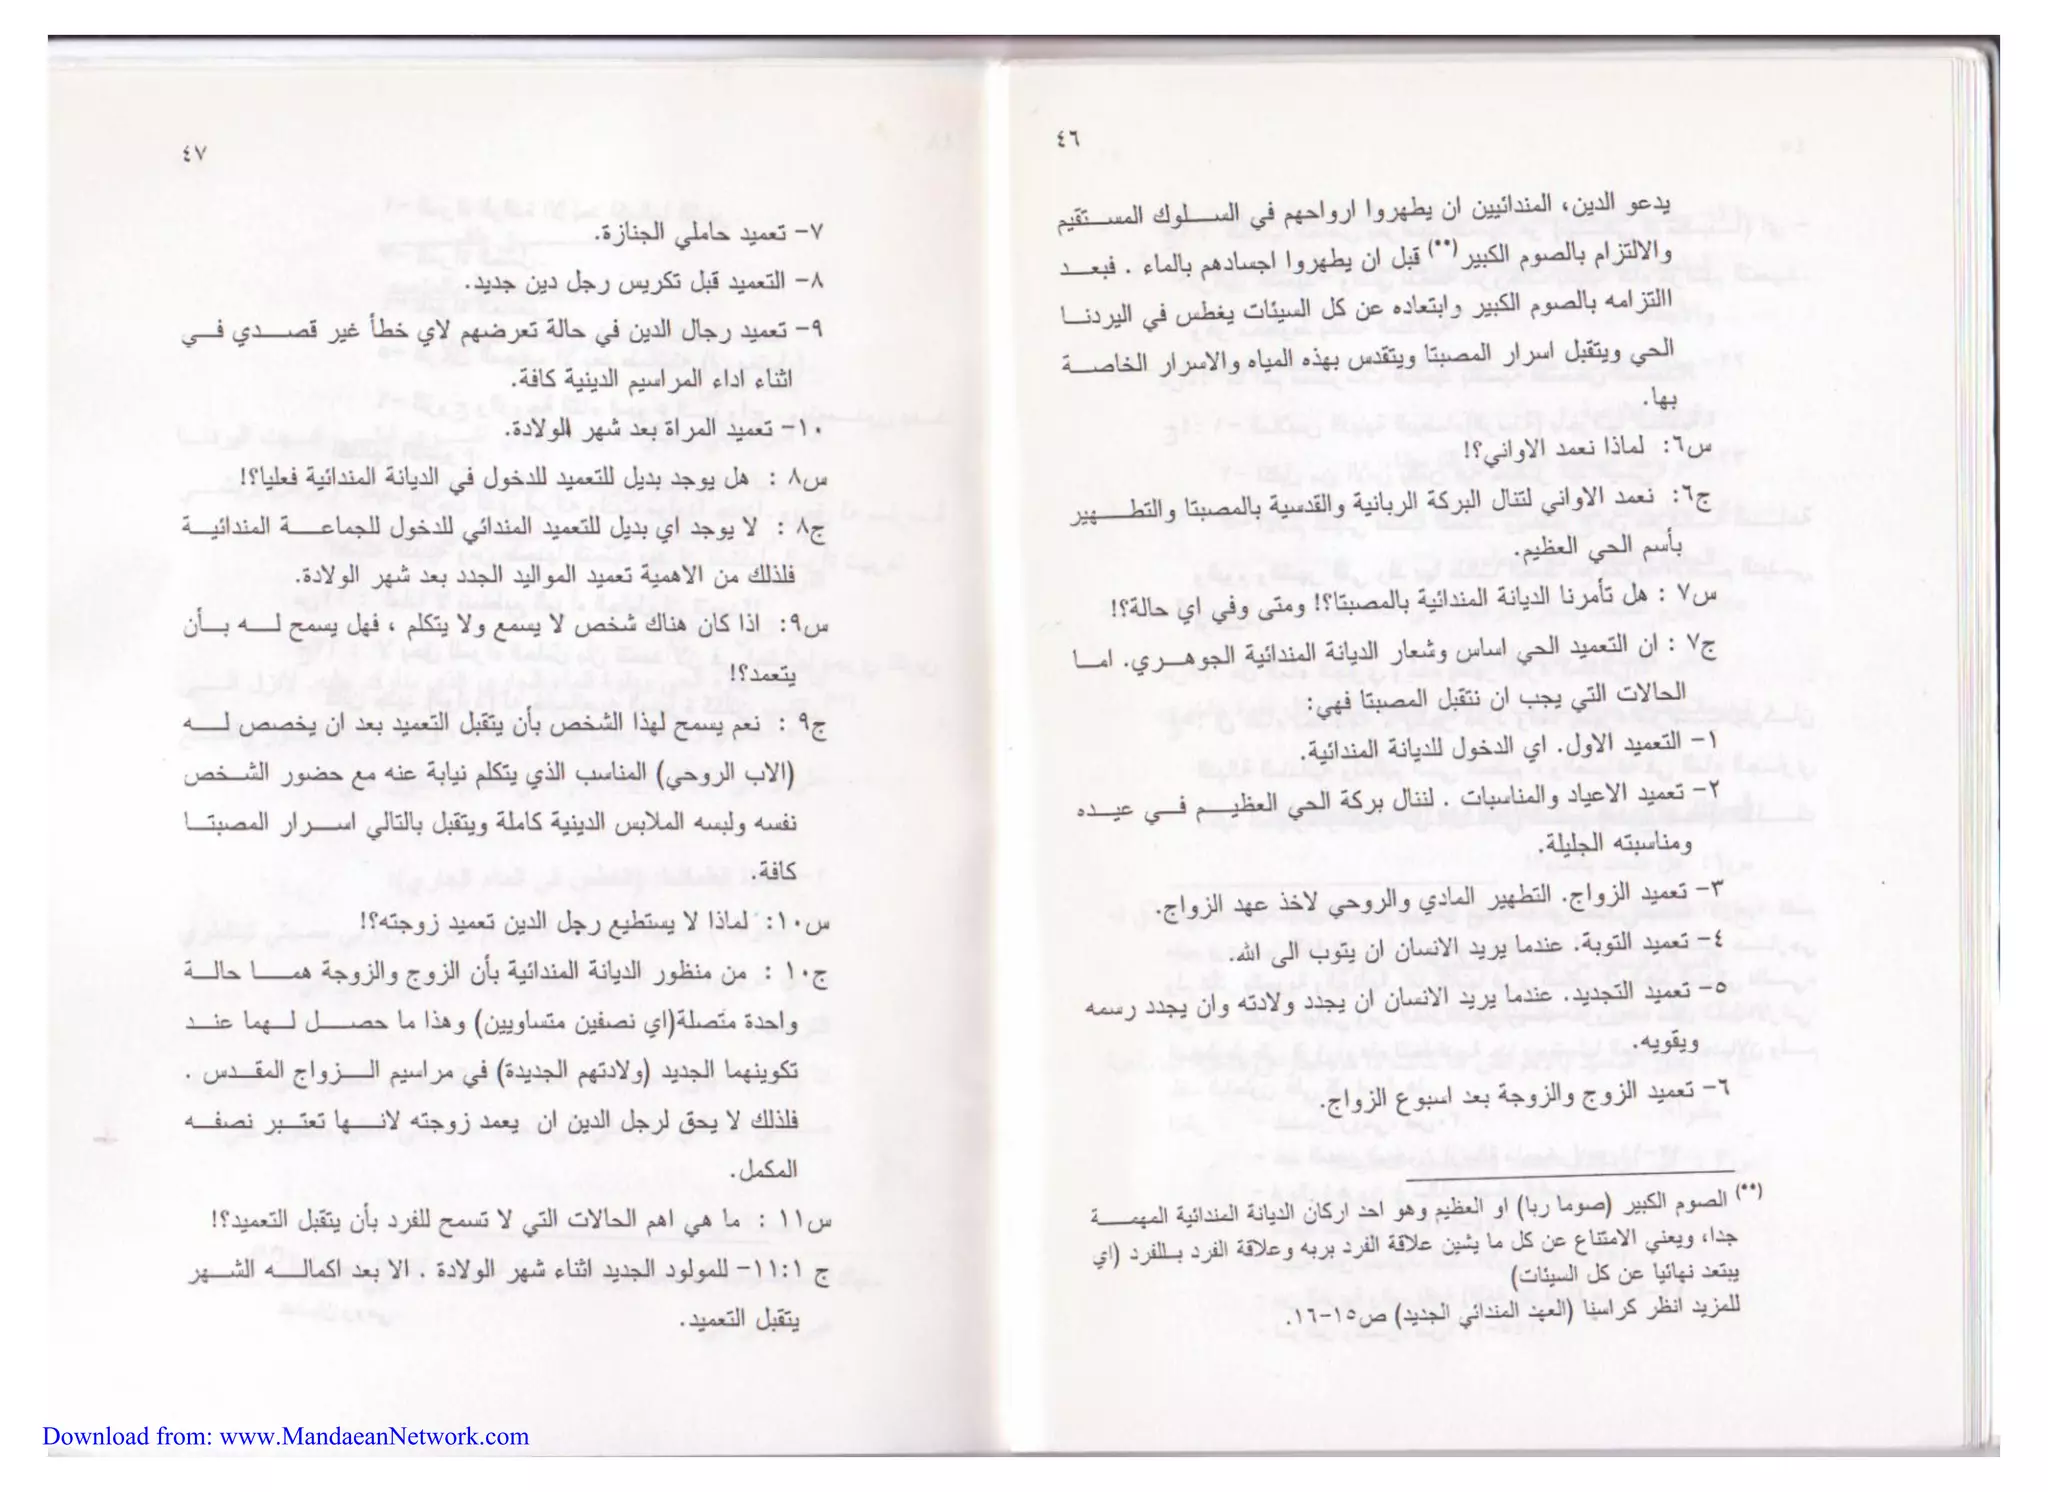 ٤٦
يدعو الدين، المندائيين ان يطهروا ارواحهم في السلوك المستقيم
والالتزام بالصوم الكبير(**) قبل ان يطهروا اجسادهم بالماء . فبعد
التزامه بالصوم الكبير وابتعاده عن كل السيئات يغطس في اليردنا
الحي ويتقبل اسرار المصبتا ويتقدس بهذه المياه والاسرار الخاصة
بها.
س٦: لماذا نعمد الاواني؟!
ج٦: نعمد الاواني لتنال البركة الربانية والقدسية بالمصبتا والتطهير
بأسم الحي العظيم.
س٧ : هل تأمرنا الديانة المندائية بالمصبتا؟! ومتى وفي اي حالة؟!
ج٧ : ان التعميد الحي اساس وشعار الديانة المندائية الجوهري. اما
الحالات التي يجب ان نتقبل المصبتا فهي:
١- التعميد الاول. اي الدخول للديانة المندائية.
٢- تعميد الاعياد والمناسبات . لننال بركة الحي العظيم في عيده
ومناسبته الجليلة.
٣- تعميد الزواج. التطهير المادي والروحي لاخذ عهد الزواج.
٤- تعميد التوبة. عندما يريد الانسان ان يتوب الى الله.
٥- تعميد التجديد. عندما يريد الانسان ان يجدد ولادته وان يجدد رسمه
ويقويه.
٦- تعميد الزوج والزوجة بعد اسبوع الزواج.
(**) الصوم الكبير (صوما ربا) او العظيم وهو احد اركان الديانة المندائية المهمة
جدا، ويعني الامتناع عن كل ما يشين علاقة الفرد بربه وعلاقة الفرد بالفرد (اي
يبتعد نهائيا عن كل السيئات)
للمزيد انظر كراسنا (العهد المندائي الجديد) ص١٥-١٦.
٤٧
٧- تعميد حاملي الجنازة.
٨- التعميد قبل تكريس رجل دين جديد.
٩- تعميد رجال الدين في حالة تعرضهم لاي خطأ غير قصدي في
اثناء اداء المراسيم الدينية كافة.
١٠- تعميد المراة بعد شهر الولادة.
س٨ : هل يوجد بديل للتعميد للدخول في الديانة المندائية فعليا؟!
ج٨ : لا يوجد اي بديل للتعميد المندائي للدخول للجماعة المندائية
فلذلك من الاهمية تعميد المواليد الجدد بعد شهر الولادة.
س٩: اذا كان هناك شخص لا يسمع ولا يتكلم ، فهل يسمح له بأن
يتعمد؟!
ج٩ : نعم يسمح لهذا الشخص بأن يتقبل التعميد بعد ان يخصص له
(الاب الروحي) المناسب الذي يتكلم نيابة عنه مع حضور الشخص
نفسه ولبسه الملابس الدينية كاملة ويتقبل بالتالي اسرار المصبتا
كافة.
س١٠: لماذا لا يستطيع رجل الدين تعميد زوجته؟!
ج١٠ : من منظور الديانة المندائية بأن الزوج والزوجة هما حالة
واحدة متصلة(اي نصفين متساويين) وهذا ما حصل لهما عند
تكوينهما الجديد (ولادتهم الجديدة) في مراسيم الزواج المقدس .
فلذلك لا يحق لرجل الدين ان يعمد زوجته لانها تعتبر نصفه
المكمل.
س١١ : ما هي اهم الحالات التي لا تسمح للفرد بأن يتقبل التعميد؟!
ج ١١:١- للمولود الجديد اثناء شهر الولادة . الا بعد اكماله الشهر
يتقبل التعميد.
Download from: www.MandaeanNetwork.com